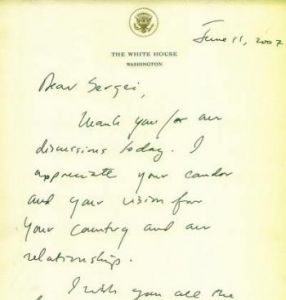 June 11, 2007
THE WHITE HOUSE
WASHINGTON
Dear Sergei,
Thank you for our
discussions today. I
appreciate your candor
and your vision for
your country and our
relationship.
I wish you all the